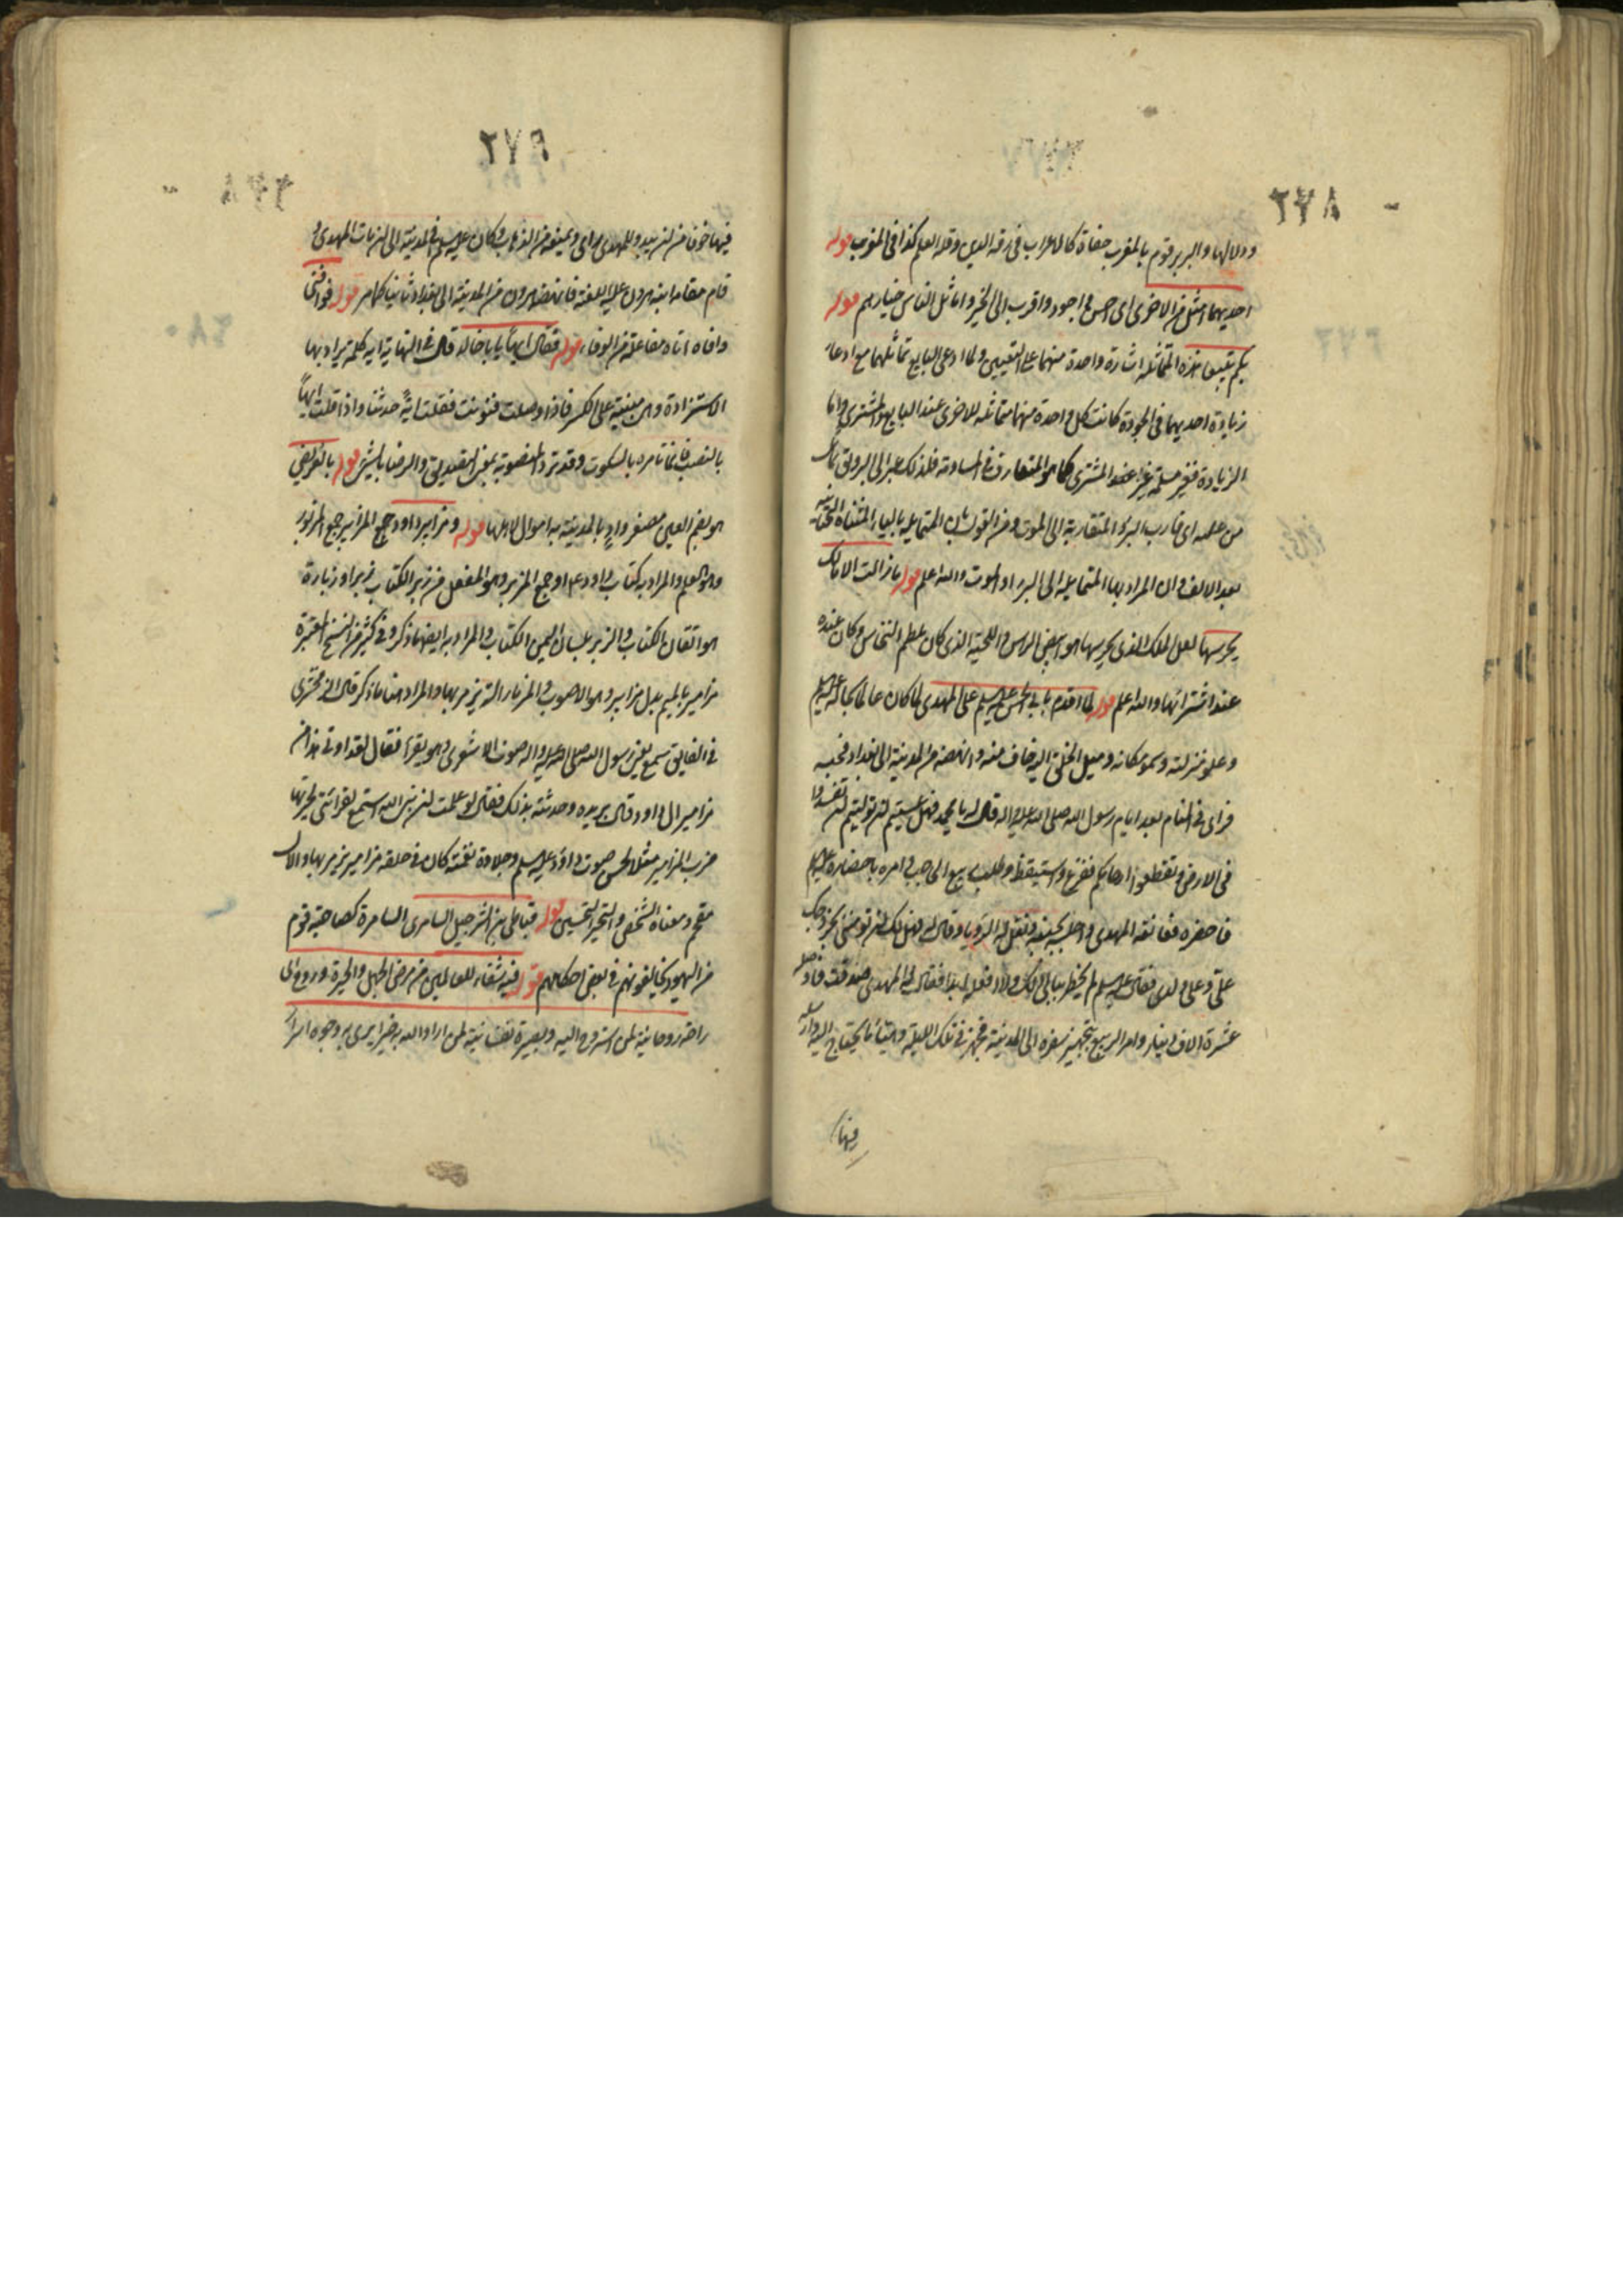 ٢٧٨
ودلالها والبربر قوم بالمغرب جفاة كالاعراب في رقة الدين وقلة العلم كذا في المغرب قوله
احديهما امثل من الاخرى اى احسن واجود واقرب الى الخير واماثل الناس خيارهم قوله
بكم تبيعنا هذه المتماثلة اشارة واحدة منهما على التعيين ولما ادعى البايع تماثلهما مع ادعاء
زيادة احديهما في الجودة كانت كل واحدة منهما متماثلة للاخرى عند البايع والمشترى واما
الزيادة فغير مسلمة عند المشترى كما هو المتعارف في المساومة فلذلك عبر
من علته اى قارب البرء المتقاربة الى الموت ومن القول بان المتمايلة بالياء المثناة التحتانية
بعد الالف وان المراد بها المتمايلة الى البرء او الموت والله اعلم قوله ما زالت الاملاك
يحرسها لعل الملك الذى يحرسها هو ابيض الراس واللحية الذى كان عظم النخاس وكان عنده
عند اشترائها والله اعلم قوله لما اقدم بابي الحسن عليه السلم على المهدى لما كان عالما بحاله عليه السلم
وعلو منزلته وسمو مكانه وميل الخلق اليه خاف منه وانهضه من المدينة الى بغداد فحبسه
فراى في المنام بعد ايام رسول الله صلى الله عليه واله قال له يا محمد فهل عسيتم ان توليتم ان تفسدوا
في الارض وتقطعوا ارحامكم ففزع واستيقظ وطلب ربيع الحاجب وامره باحضاره عليه السلم
فاحضره فعانقه المهدى واجلسه بجنبه ونقل له الرؤيا وقال له فهل لك ان تؤمننى بخروجك
على وعلى ولدى فقال عليه السلم لم يخطر ببالى ذلك ولا افعله ابدا فقال له المهدى صدقت فاوصله
عشرة الاف دينار وامر الربيع بتجهيز سفره الى المدينة فجهزه في تلك الليلة وهيئا ما يحتاج اليه وارسله
فيها
٢٧٩
فيها خوفا من ان يبدو للمهدى راى ويمنعه من الذهاب وكان عليه السلم في المدينة الى ان مات المهدى و
قام مقامه ابنه هرون عليه اللعنة فانهضه هرون من المدينة الى بغداد ثانيا كما مر قوله فوافنى
وافاه اتاه مفاعلة من الوفاء قوله فقال ايها يا با خالد قال في النهاية ايه كلمة يراد بها
الاستزادة وهى مبنية على الكسر فاذا وصلت فنونت فقلت ايه حدثنا واذا قلت ايها
بالنصب فانما تامره بالسكوت وقد ترد المنصوبة بمعنى التصديق والرضا بالشئ قوله بالعريض
هو بضم العين مصغر واد بالمدينة به اموال لاهلها قوله ومزابير داود جمع المزابير جمع المزبور
وهو القلم والمراد به كتاب داود او جمع المزبر وهو المفعل من زبر الكتاب زبرا وزبارة
هو اتقان الكتاب والزبر بلسان اليمن الكتاب والمراد به ايضا ما ذكر وفي كثير من النسخ المعتبرة
مزامير بالميم بدل مزابير وهو الاصوب والمزمار الة يزمر بها والمراد هنا ما ذكر قال الزمخشرى
في الفايق سمع يعنى رسول الله صلى الله عليه واله صوت الاشعرى وهو يقرأ فقال لقد اوتى هذا من
مزامير ال داود قال بريده وحدثته بذلك فقال لو علمت ان نبى الله استمع لقرائتى لحبرتها
ضرب المزامير مثلا لحسن صوت داود عليه السلم وحلاوة نغمته كان في حلقه مزامير يزمر بها والال
مقحم ومعناه الشخص والتحبير التحسين قوله فتباطى بن الشرحبيل السامرى السامرة كصاحبة قوم
من اليهود يخالفونهم في بعض احكامهم قوله فيه شفاء للعالمين من مرض الجهل والحيرة وروح اى
راحة روحانية لمن استروح اليه وبصيرة نفسانية لمن اراد الله به خيرا يرى به وجوه اسرار